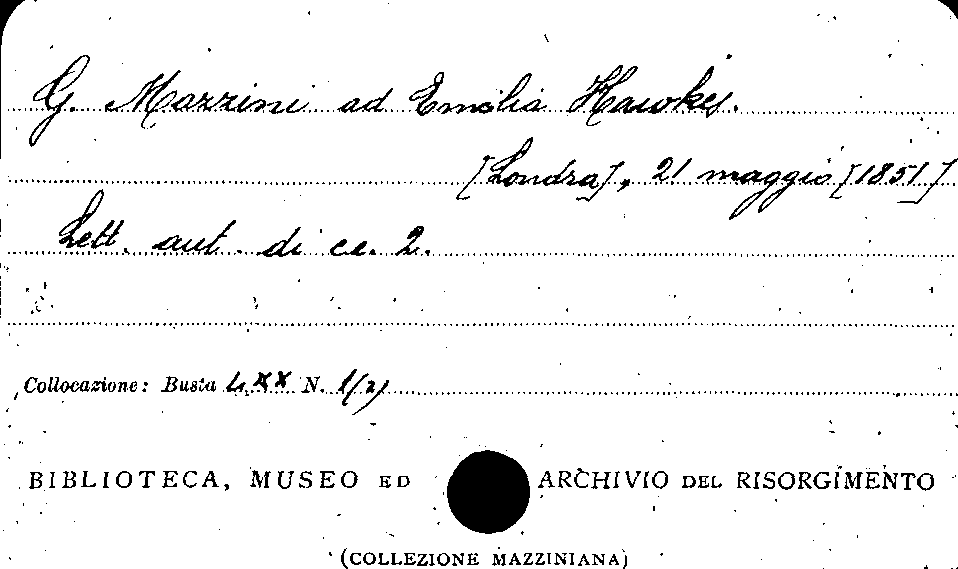 G. Mazzini ad Emilia Hawkes.
[Londra], 21 maggio [1851]
Lett. aut. di cc. 2.
Collocazione: Busta LXX N. 1/2)
BIBLIOTECA, MUSEO ED ARCHIVIO DEL RISORGIMENTO
(COLLEZIONE MAZZINIANA)